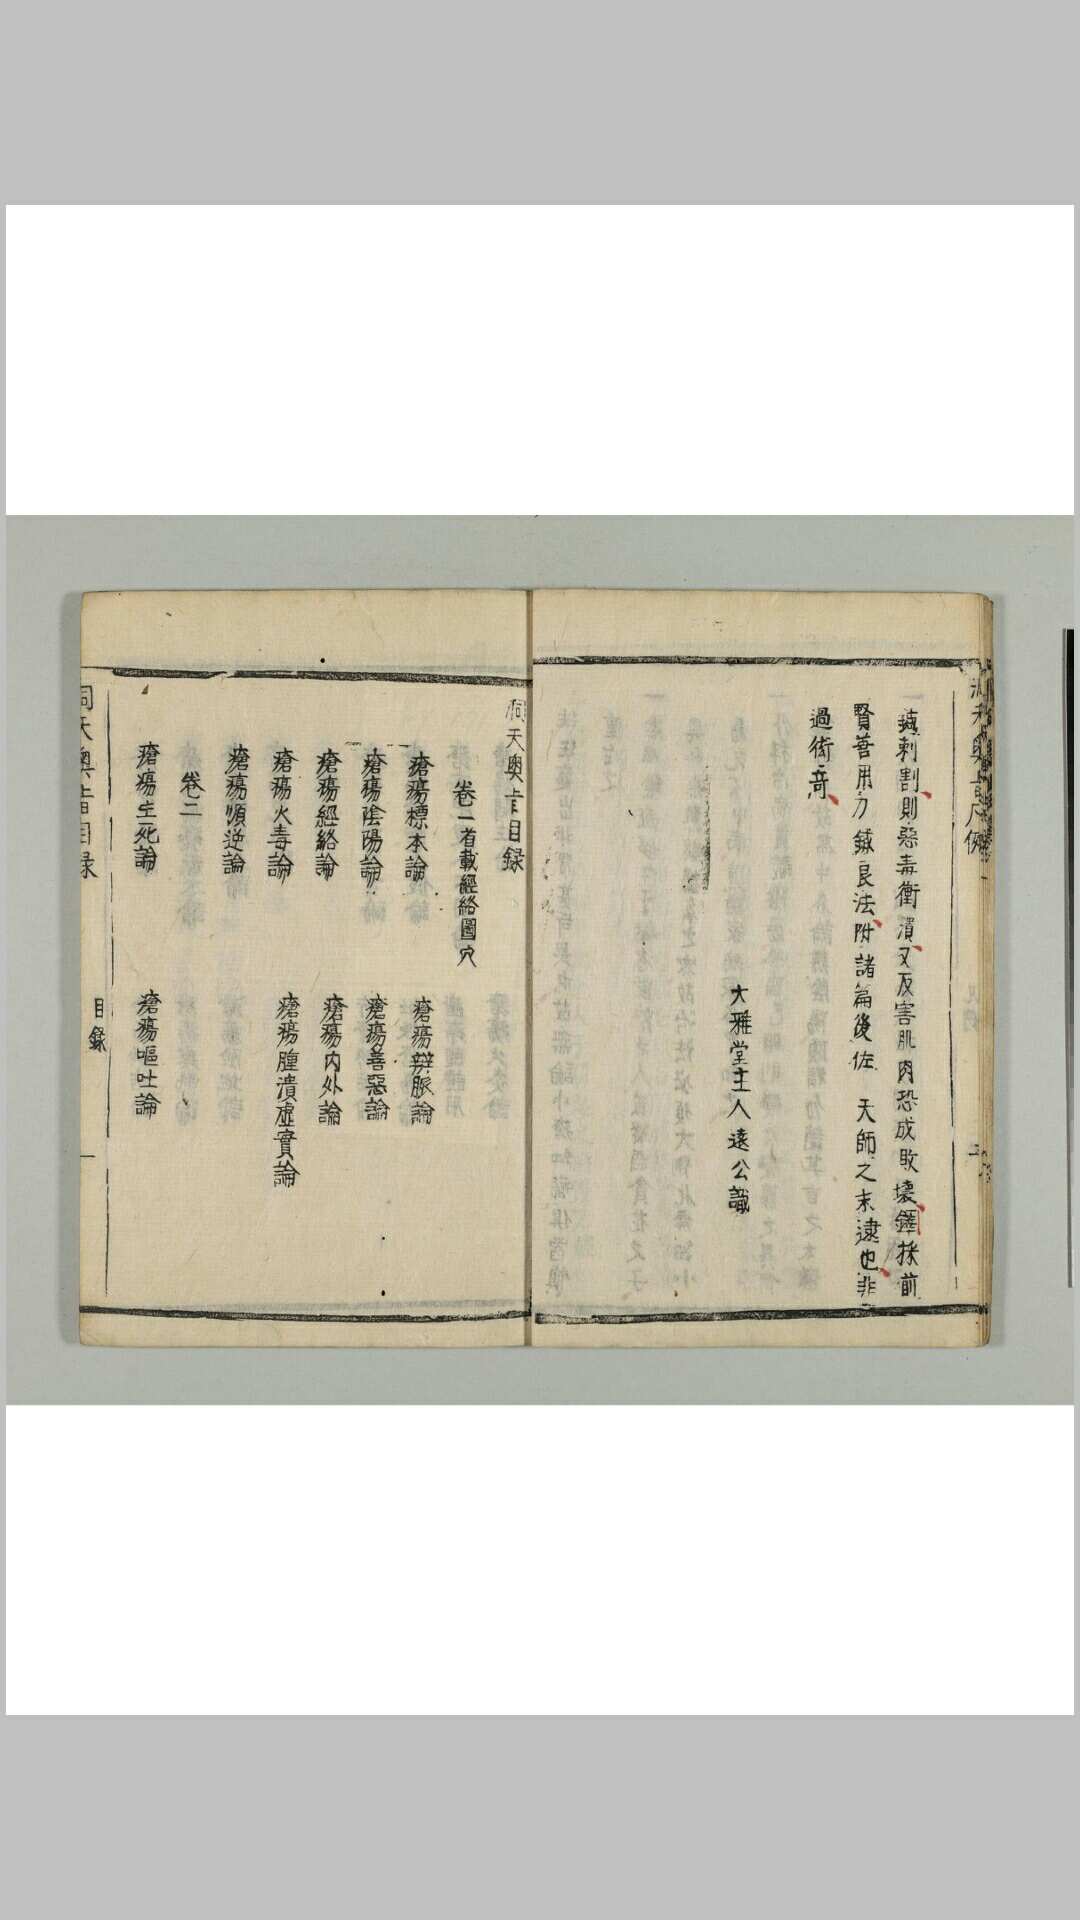 鍼刺割則惡毒衝潰又反害肌肉恐成敗壞鐸採前
賢善用刀鍼良法附諸篇後佐 天師之末逮也非
過衒奇
大雅堂主人遠公識
洞天奧旨目録
卷一首載經絡圖穴
瘡瘍標本論 瘡瘍辨脈論
瘡瘍陰陽論 瘡瘍善惡論
瘡瘍經絡論 瘡瘍内外論
瘡瘍火毒論 瘡瘍腫潰虛實論
瘡瘍順逆論
卷二
瘡瘍生死論 瘡瘍嘔吐論
洞天奧旨目録
目録
一